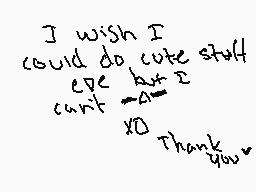 I wish I
could do cute stuff
eve but I
can't -△-
XD
Thank
you ♥